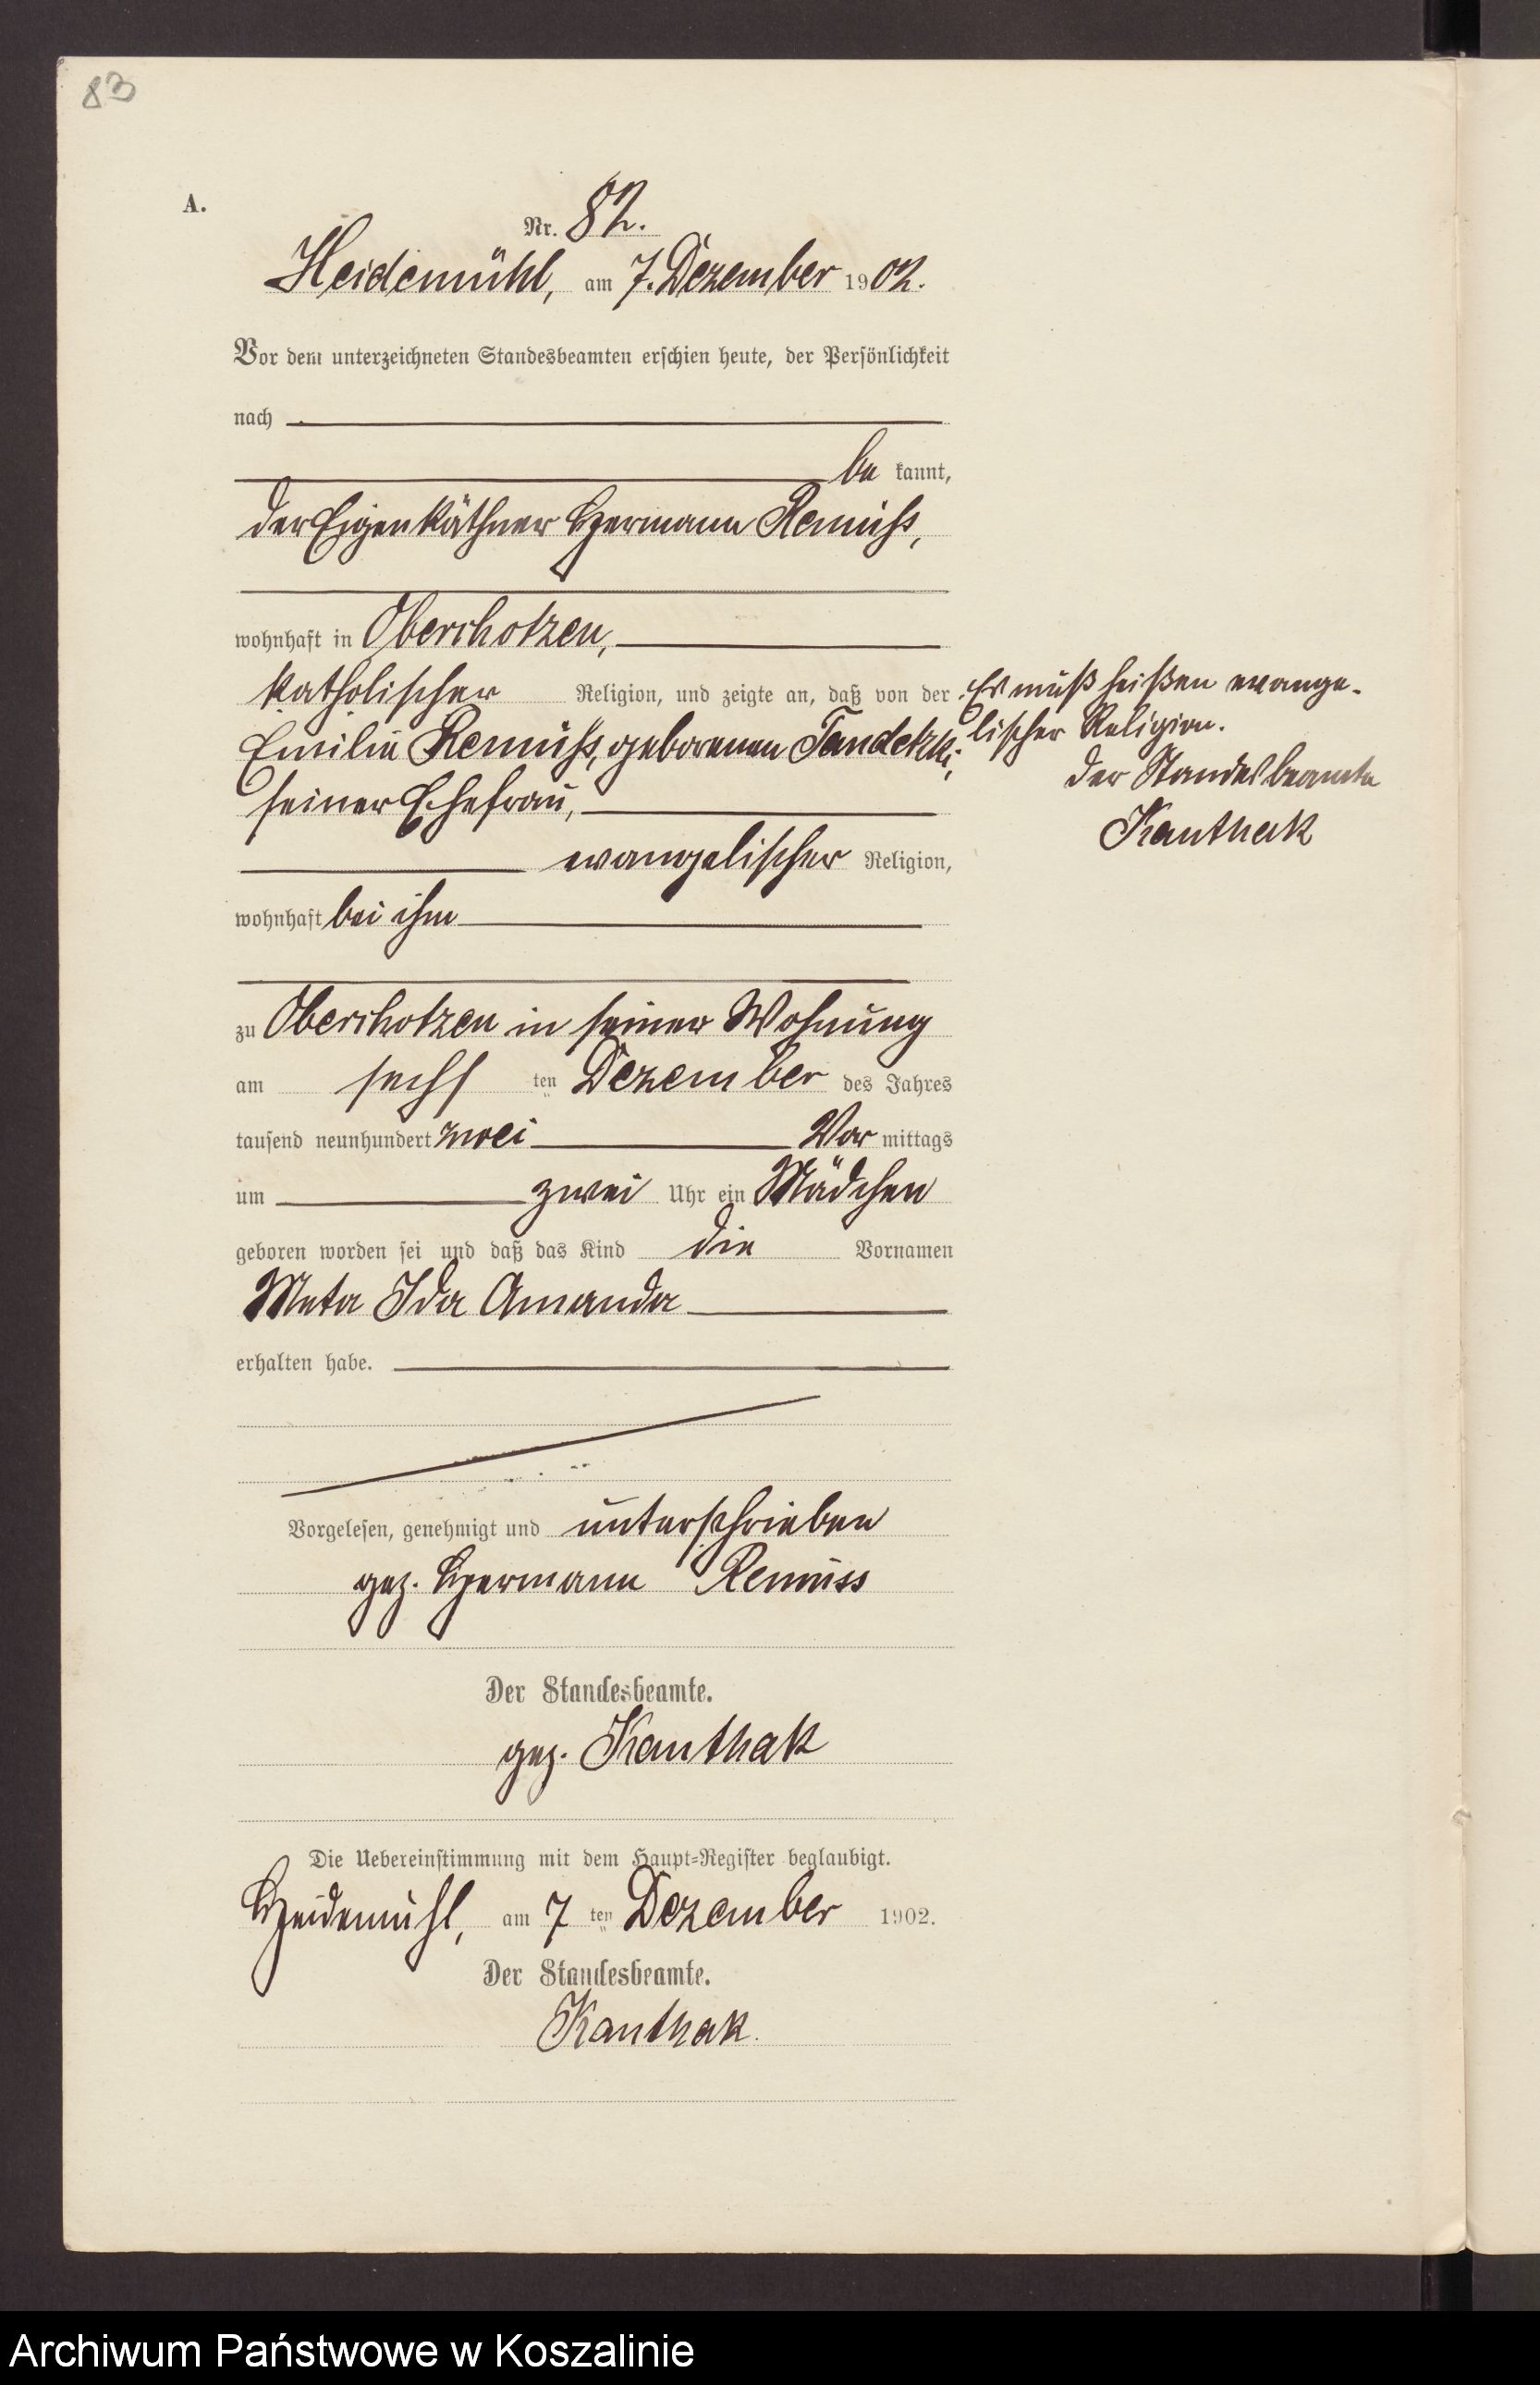 83
A.
Nr. 82.
Heidemühl, am 7. Dezember 1902.
Vor dem unterzeichneten Standesbeamten erschien heute, der Persönlichkeit
nach
be kannt,
der Eigenkäthner Hermann Remuss,
wohnhaft in Oberchotzen,
katholischer Religion, und zeigte an, daß von der
Emilie Remuss, geborenen Tandetzki,
seiner Ehefrau,
evangelischer Religion,
wohnhaft bei ihm
zu Oberchotzen in seiner Wohnung
am sechs ten Dezember des Jahres
tausend neunhundert zwei Vor mittags
um zwei Uhr ein Mädchen
geboren worden sei und daß das Kind die Vornamen
Meta Ida Amanda
erhalten habe.
Vorgelesen, genehmigt und unterschrieben
gez. Hermann Remuss
Der Standesbeamte.
gez. Kanthak
Die Uebereinstimmung mit dem Haupt-Register beglaubigt.
Heidemühl, am 7 ten Dezember 1902.
Der Standesbeamte.
Kanthak.
Es muß heißen evange-
lischer Religion.
Der Standesbeamte
Kanthak
Archiwum Państwowe w Koszalinie